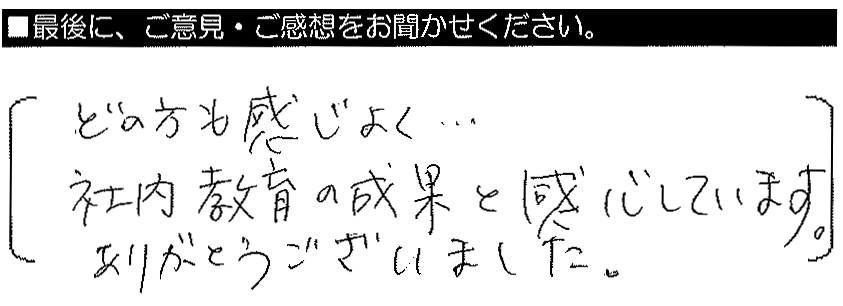 ■最後に、ご意見・ご感想をお聞かせください。
どの方も感じよく…
社内教育の成果と感心しています。
ありがとうございました。